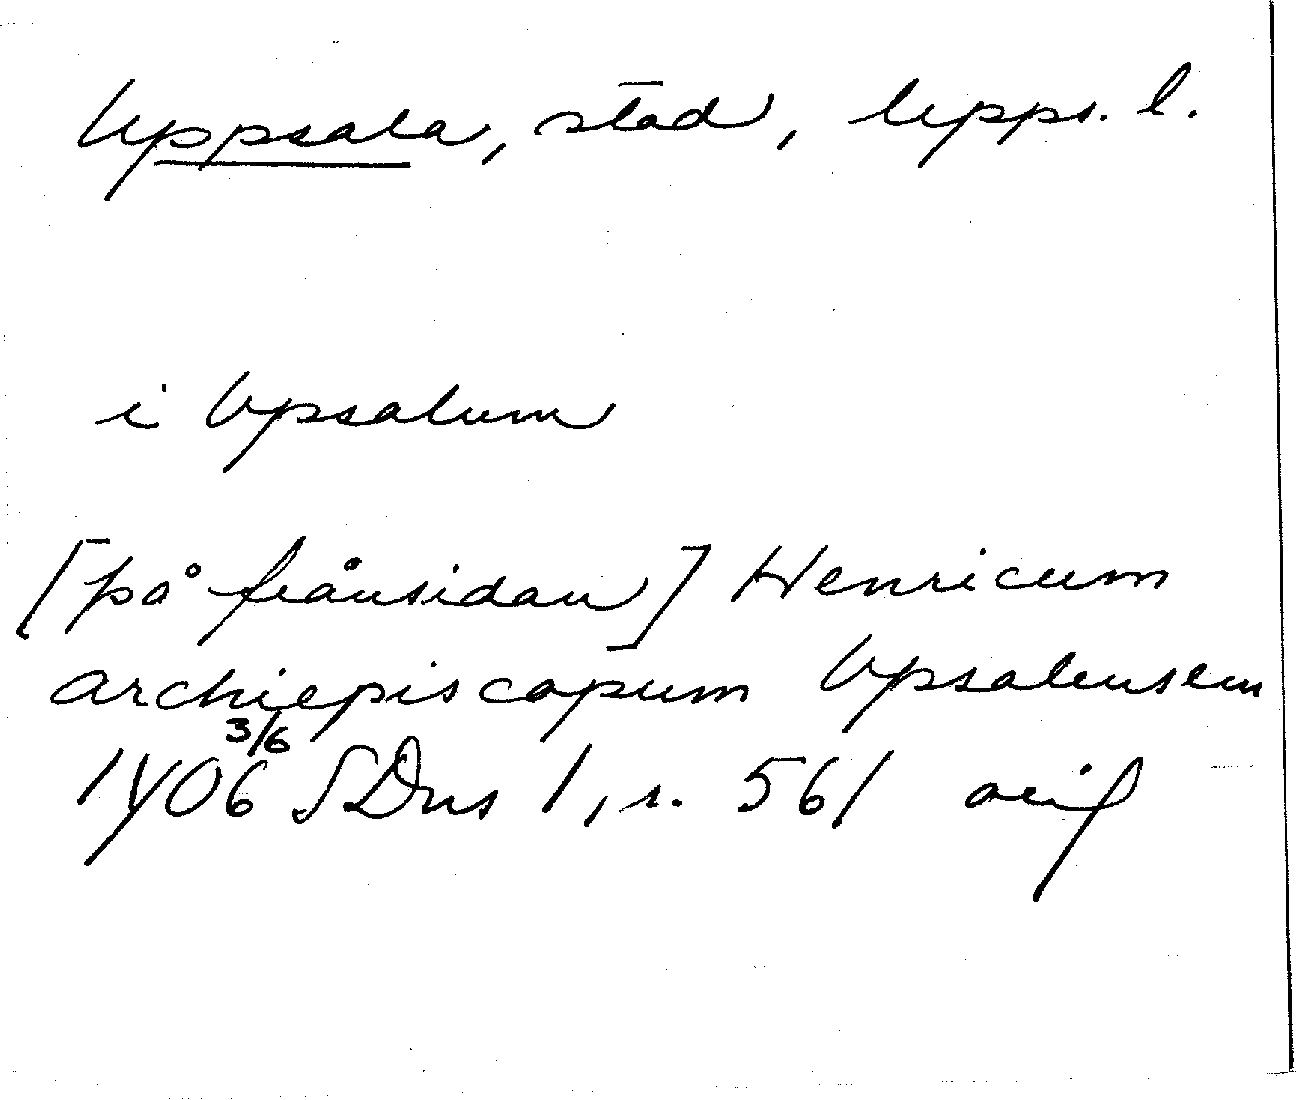 Uppsala, stad, Upps. l.
i Vpsalum
[på frånsidan] Henricum
archiepiscopum Vpsalensem
1406 3/6 SDns 1, s. 561 orig